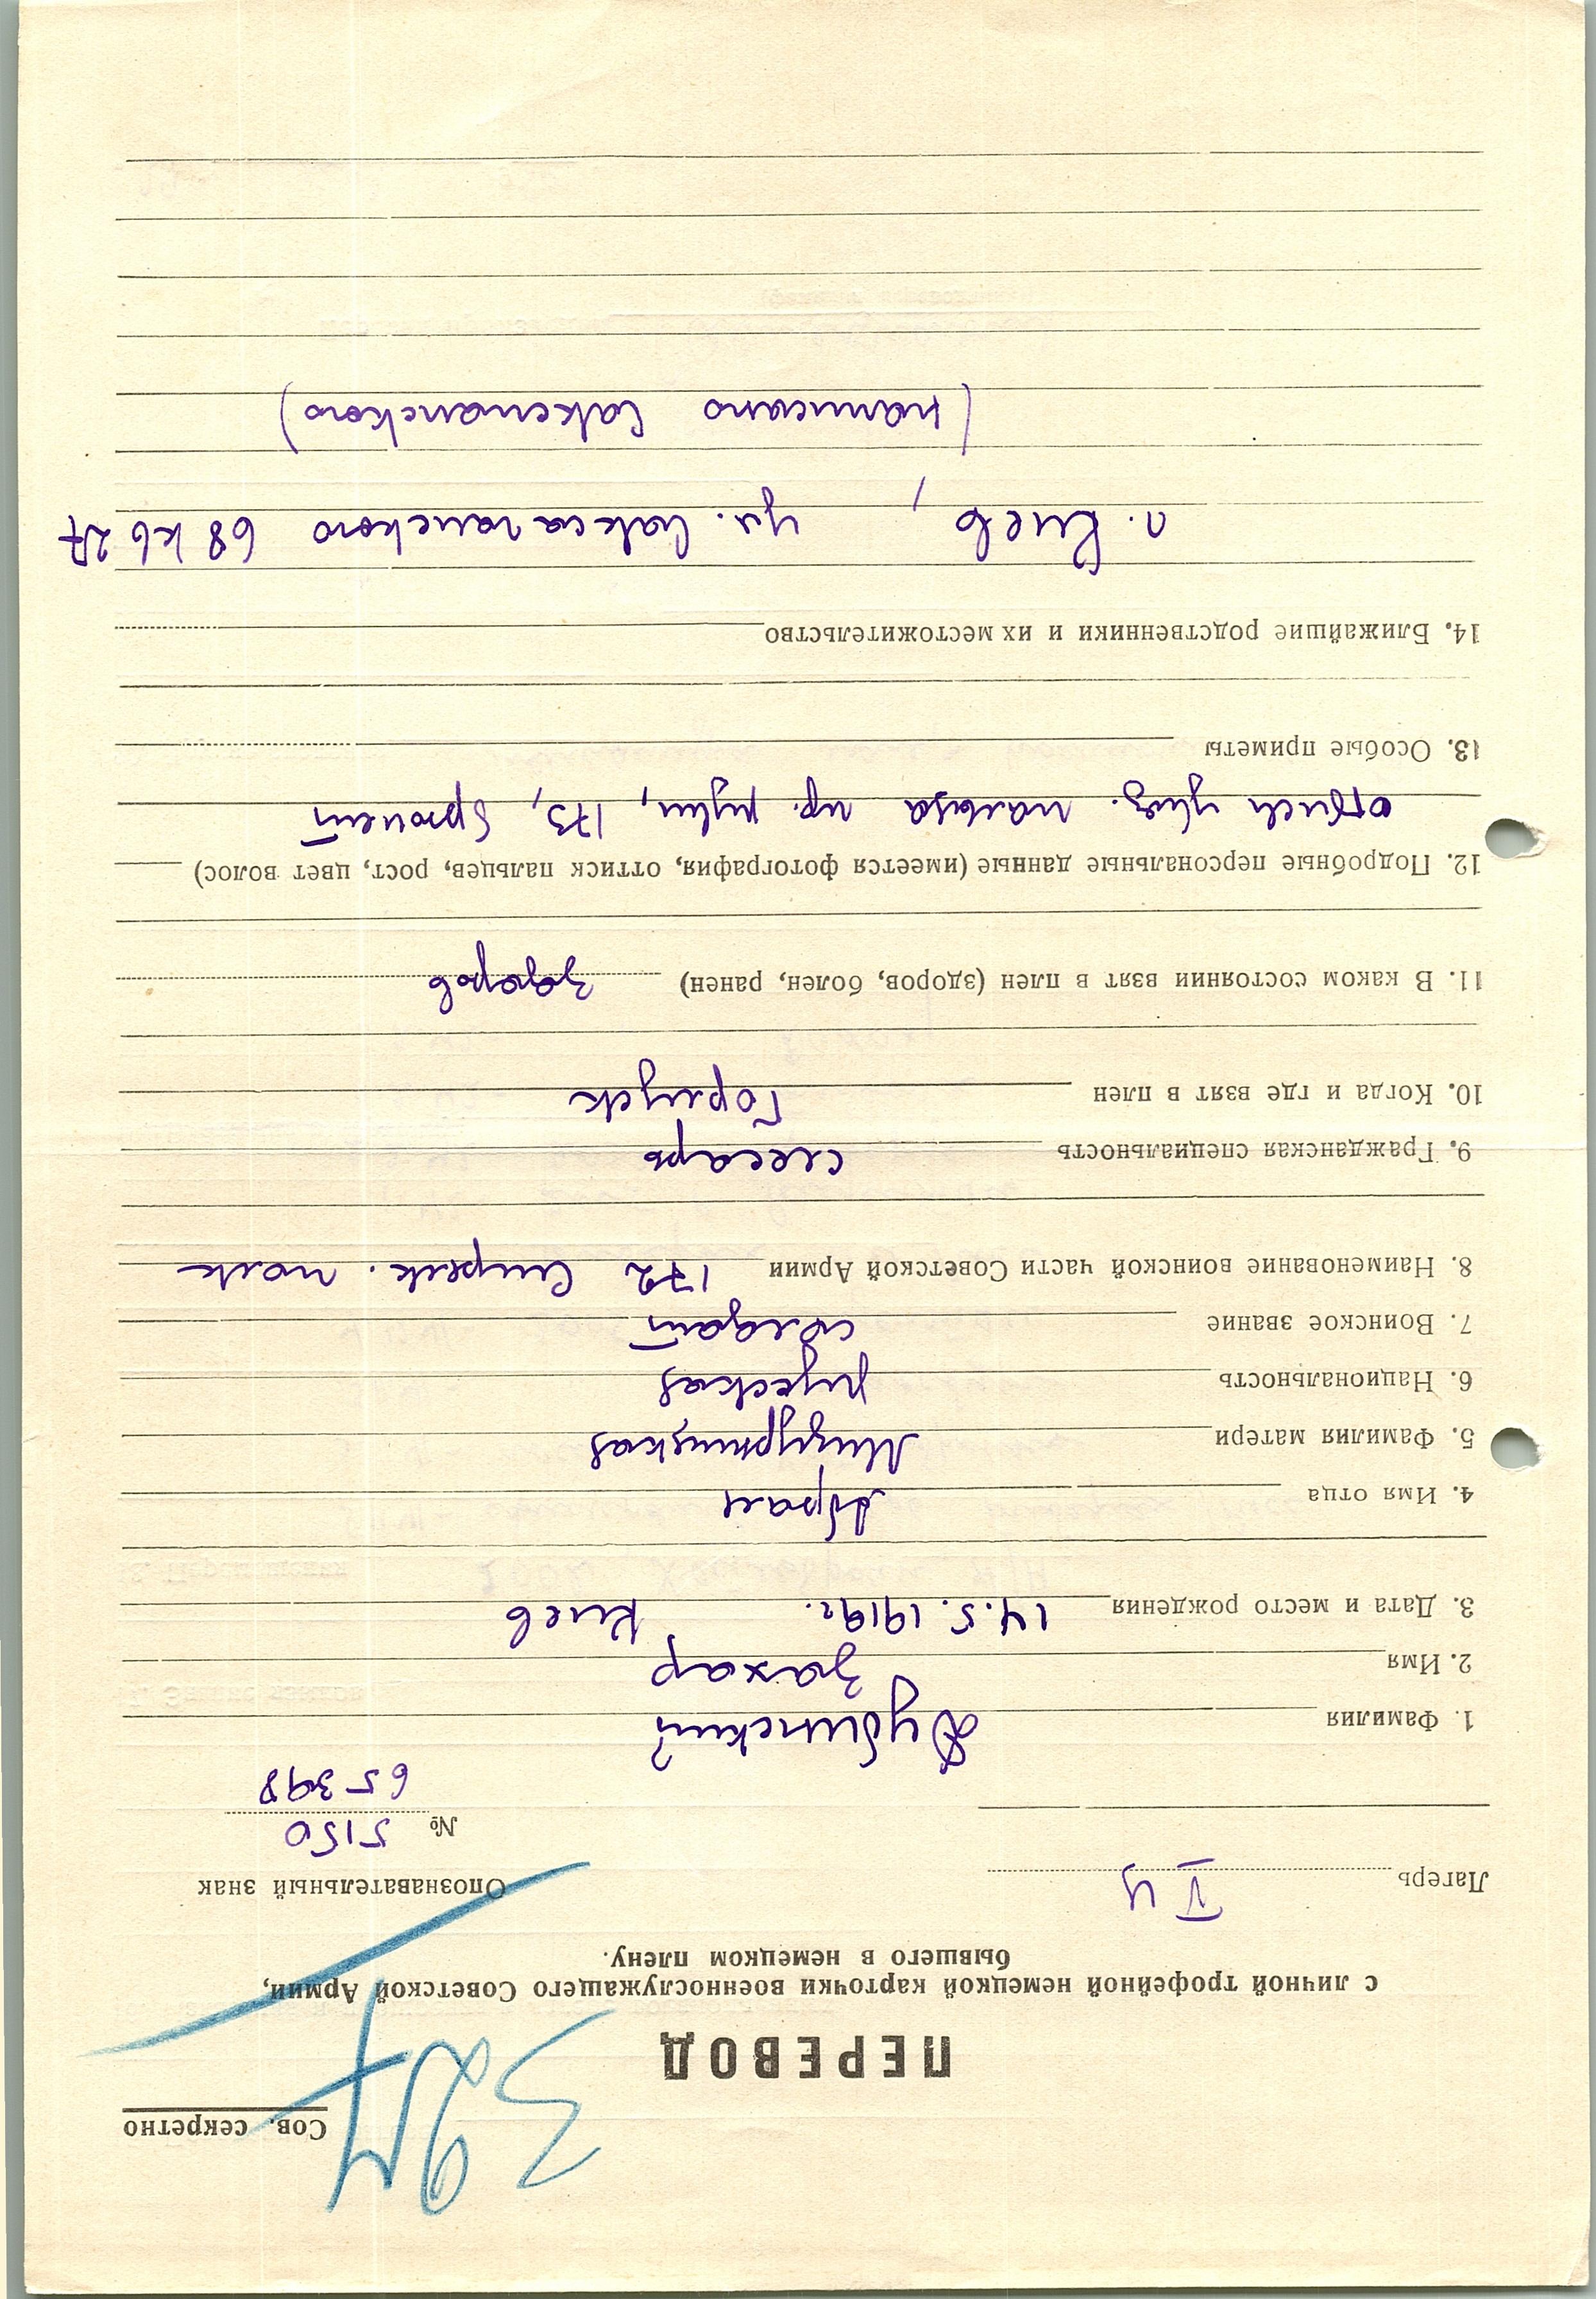 Сов. секретно
397
ПЕРЕВОД
с личной трофейной немецкой карточки военнослужащего Советской Армии,
бывшего в немецком плену.
Лагерь
Опознавательный знак
№ 5150
65398
1. Фамилия Дубинский
2. Имя Захар
3. Дата и место рождения 14.5.1919г. Киев
4. Имя отца Абрам
5. Фамилия матери
6. Национальность русская
7. Воинское звание солдат
8. Наименование воинской части Советской Армии 172 стрелк. полк
9. Гражданская специальность слесарь
10. Когда и где взят в плен
11. В каком состоянии взят в плен (здоров, болен, ранен) здоров
12. Подробные персональные данные (имеется фотография, оттиск пальцев, рост, цвет волос)
указ. пальца пр. руки, 173, брюнет
13. Особые приметы
14. Ближайшие родственники и их местожительство
г. Киев, ул. Саксаганского 68 кв 27
(написано Саксманского)